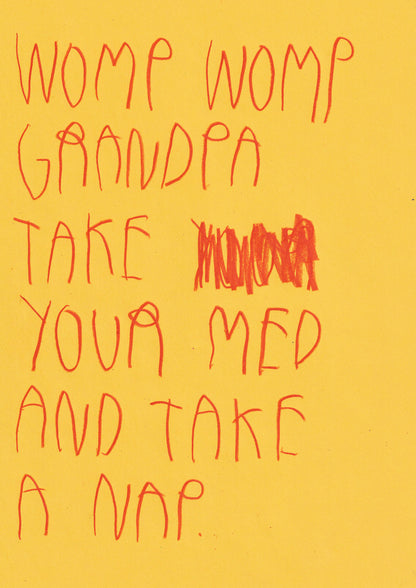 WOMP WOMP
GRANDPA
TAKE
YOUR MED
AND TAKE
A NAP.